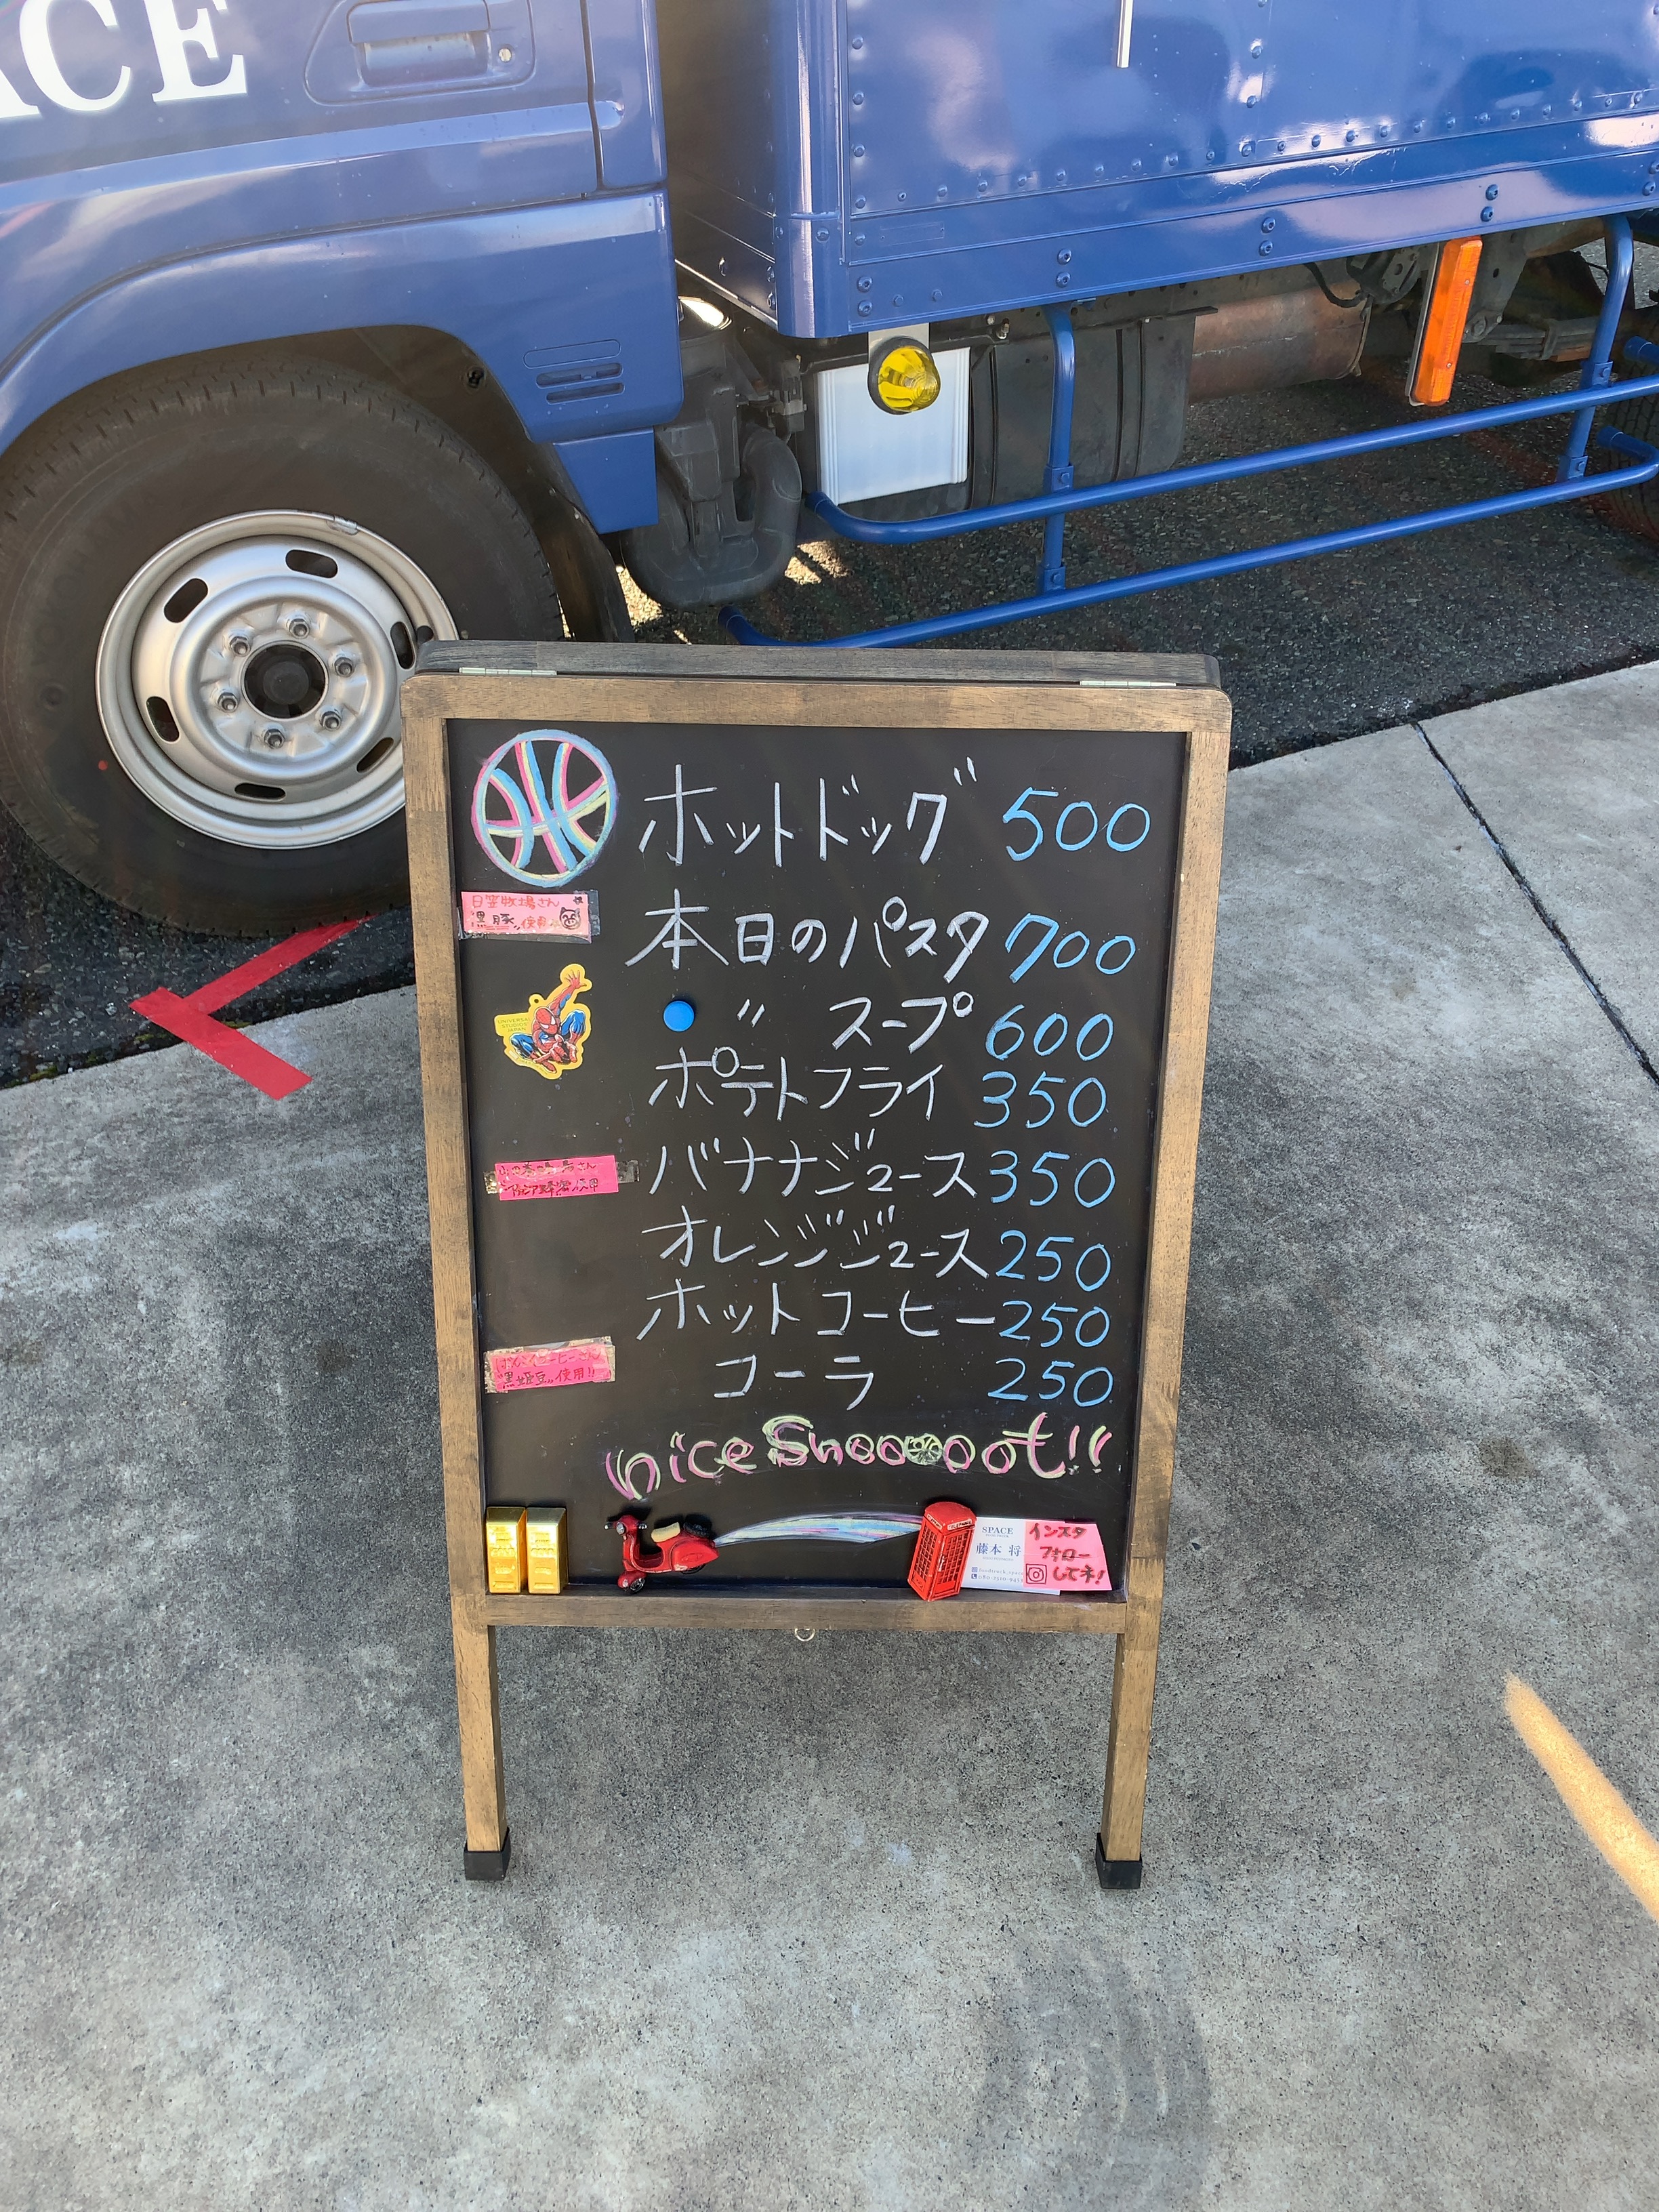 ACE
ホットドッグ 500
日笠牧場さん
"黒豚"使用
本日のパスタ 700
UNIVERSAL
STUDIOS
JAPAN
〃 スープ 600
ポテトフライ 350
バナナジュース 350
オレンジジュース 250
ホットコーヒー 250
"黒姫豆"使用!!
コーラ 250
nice Shooooot!!
SPACE
藤本 将
インスタ
フォロー
してネ!